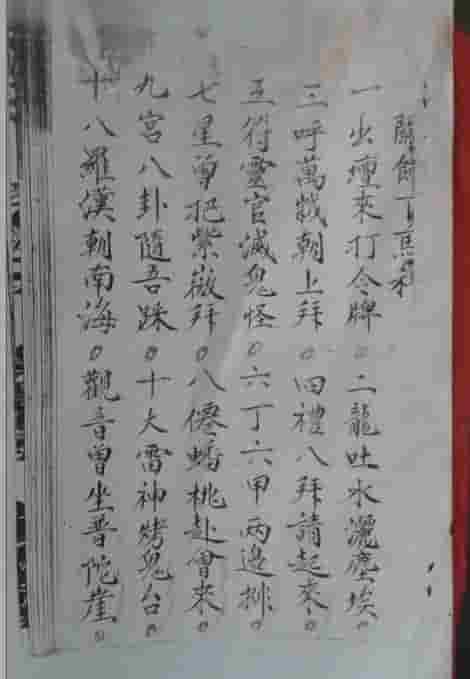 丁
一出壇來打令牌。二龍吐水灑塵埃
三呼萬歲朝上拜。四禮八拜請起來。
五符靈官滅鬼怪。六丁六甲兩邊排。
七星曾把紫微拜。八僊蟠桃赴會來。
九宮八卦隨吾跺。十大雷神烤鬼台。
十八羅漢朝南海。觀音曾坐普陀崖。